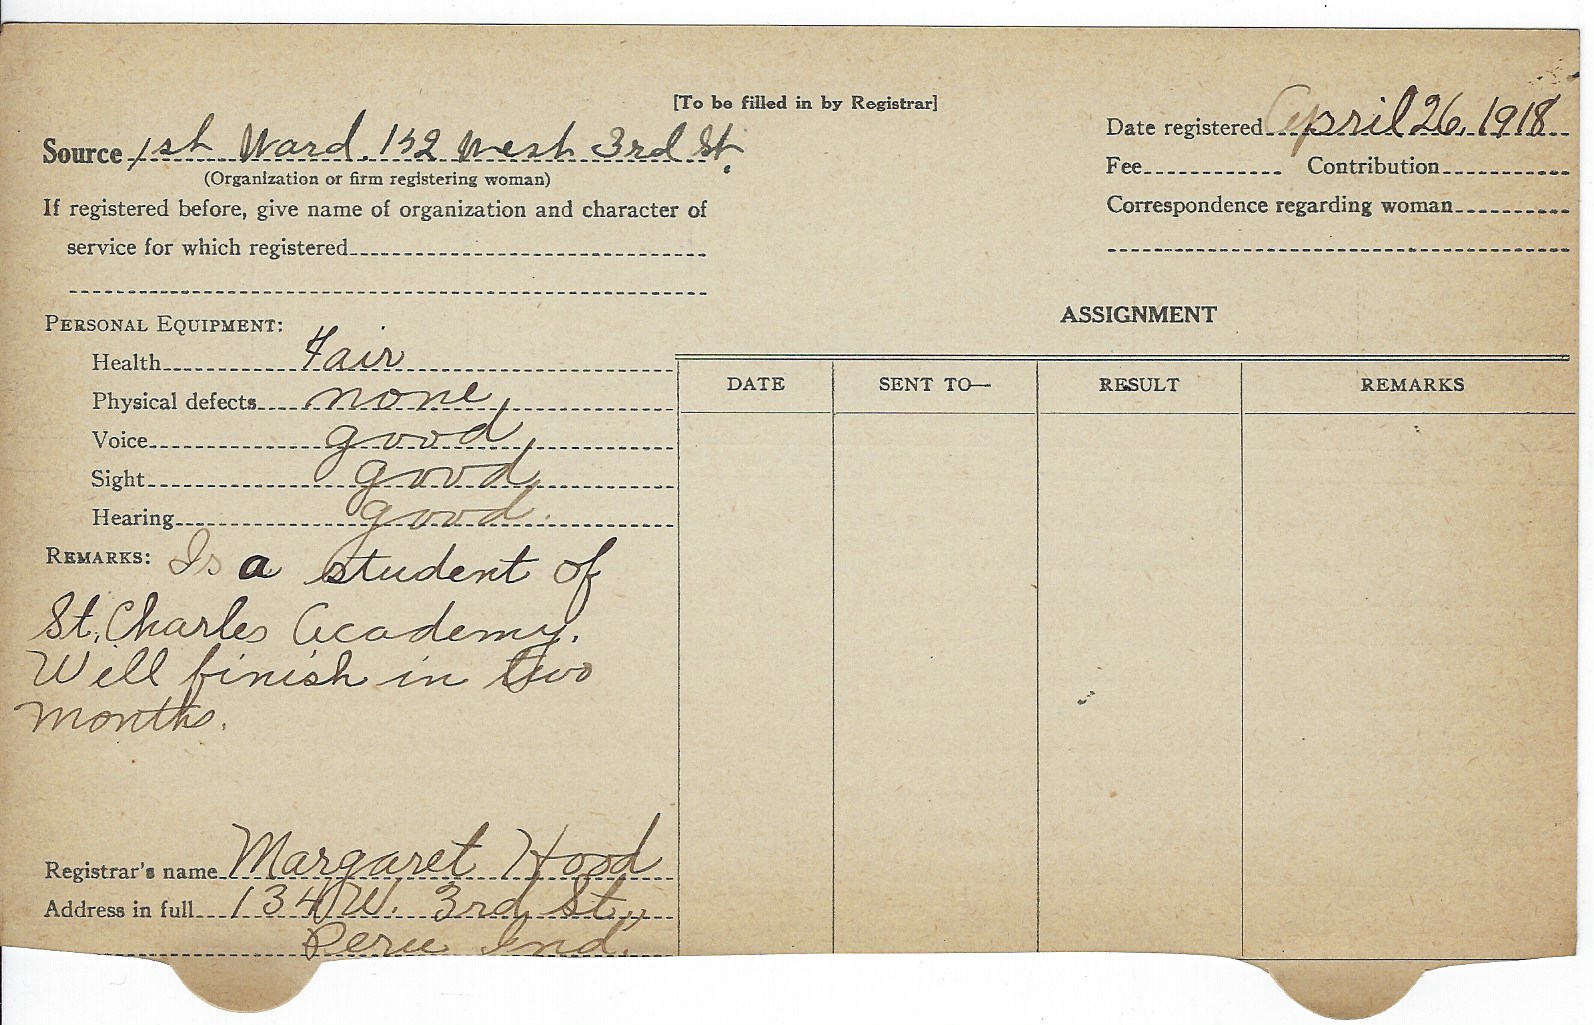 [To be filled in by Registrar]
Source 1st Ward. 132 West 3rd St.
(Organization or firm registering woman)
If registered before, give name of organization and character of
service for which registered
Date registered April 26, 1918
Fee Contribution
Correspondence regarding woman
PERSONAL EQUIPMENT:
Health Fair
Physical defects none
Voice good
Sight good
Hearing good.
REMARKS: Is a student of
St. Charles Academy.
Will finish in two
months.
Registrar's name Margaret Hood
Address in full 134 W. 3rd St.,
Peru Ind.
ASSIGNMENT
DATE SENT TO— RESULT REMARKS